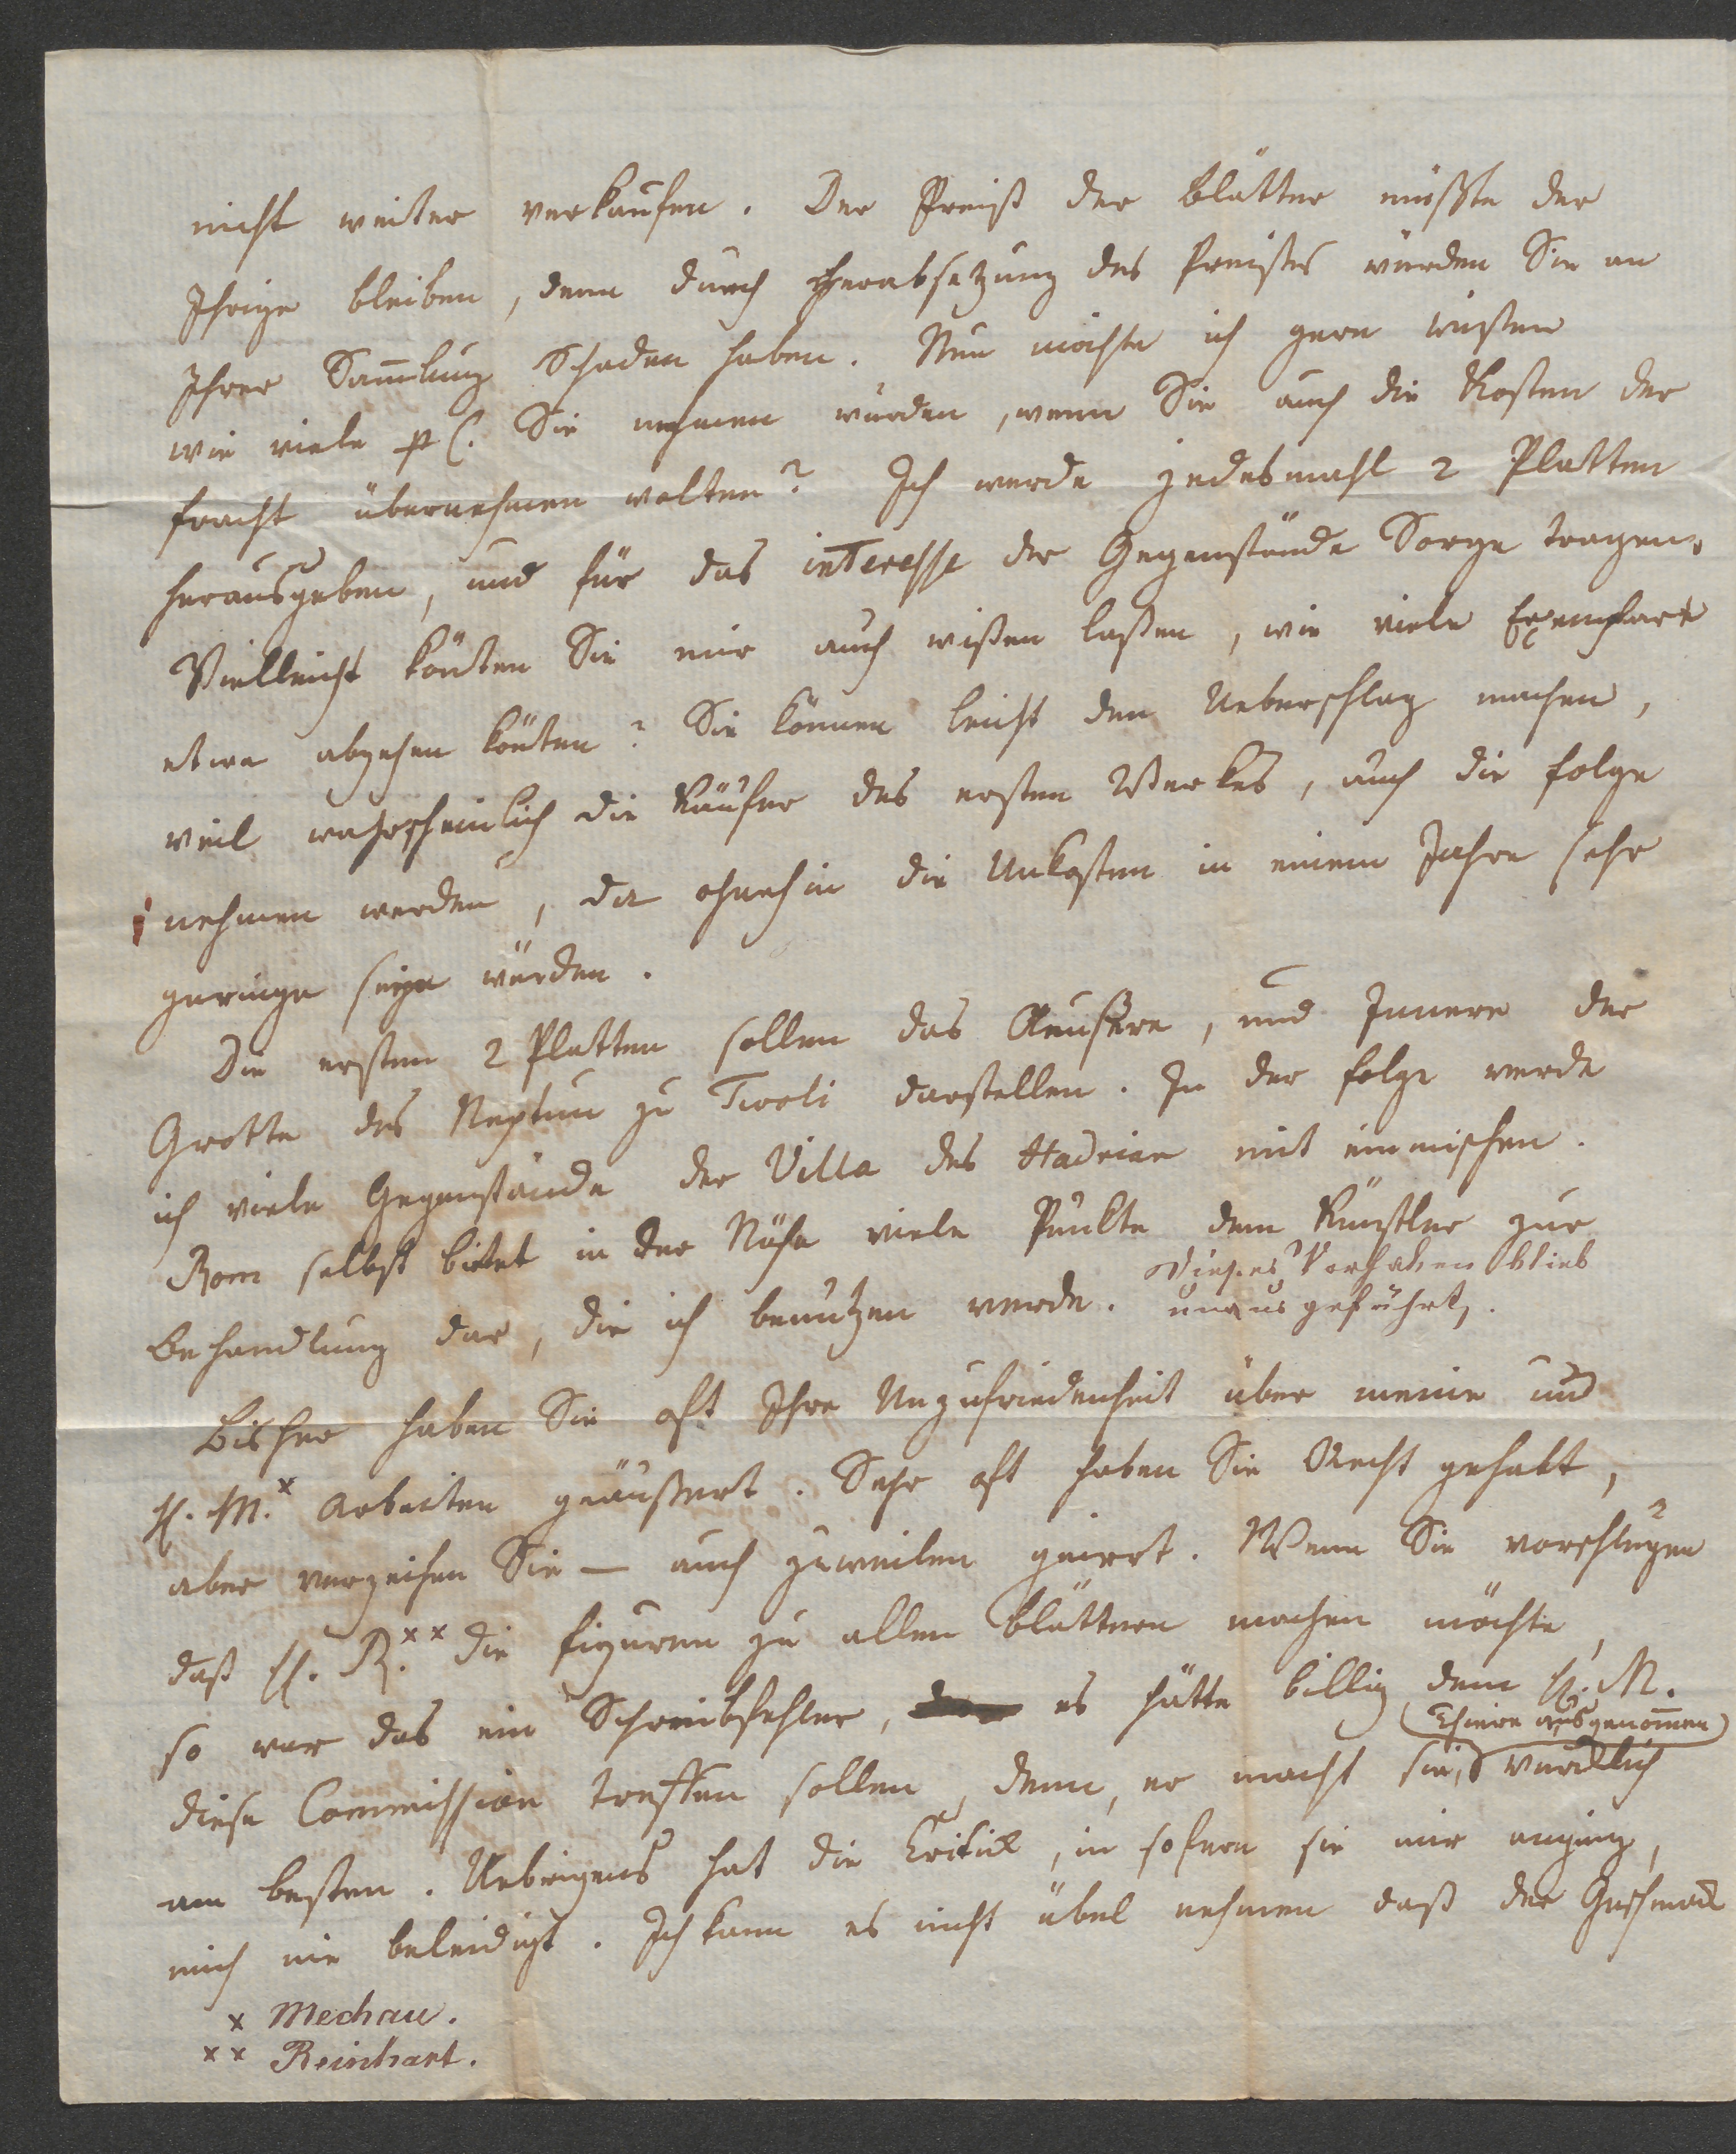 nicht weiter verkaufen. Der Preiß der Blätter müßte der
Ihrige bleiben, denn durch Herabsetzung des Preißes würden Sie an
Ihrer Sam̄lung Schaden haben. Nun möchte ich gern wißen
wie viele p C. Sie nehmen würden, wenn Sie auch die Kosten der
fracht übernehmen wolten? Ich werde jedesmahl 2 Platten
herausgeben, und für das interesse der Gegenstände Sorge tragen.
Vielleicht könten Sie mir auch wißen laßen, wie viele Exemplare
etwa abgehen könten? Sie können leicht den Ueberschlag machen,
weil wahrscheinlich die Käufer des ersten Werkes, auch die folge
nehmen werden, da ohnehin die Unkosten in einem Jahre sehr
geringe seyn würden.
Die ersten 2 Platten sollen das Aeußere, und Innere der
Grotte des Neptun zu Tivoli darstellen. In der folge werde
ich viele Gegenstände der Villa des Hadrian mit einmischen.
Rom selbst bietet in der Nähe viele Punkte dem Künstler zur
Behandlung dar, die ich benutzen werde. Dieses Vorhaben blieb
unausgeführt.
Bisher haben Sie oft Ihre Unzufriedenheit über meine und
H. M.ˣ Arbeiten geäußert. Sehr oft haben Sie Recht gehabt,
aber verzeihen Sie – auch zuweilen geirrt. Wenn Sie vorschlugen
daß H. R.ˣˣ die figuren zu allen Blättern machen möchte,
so war das ein Schreibfehler, es hätte billig dem H. M.
(Thiere ausgenom̄en)
diese Commission treffen sollen, denn, er macht sie, würcklich
am besten. Uebrigens hat die Critick, in sofern sie mir anging,
mich nie beleidigt. Ich kann es nicht übel nehmen daß der Geschmack
x Mechau.
xx Reinhart.